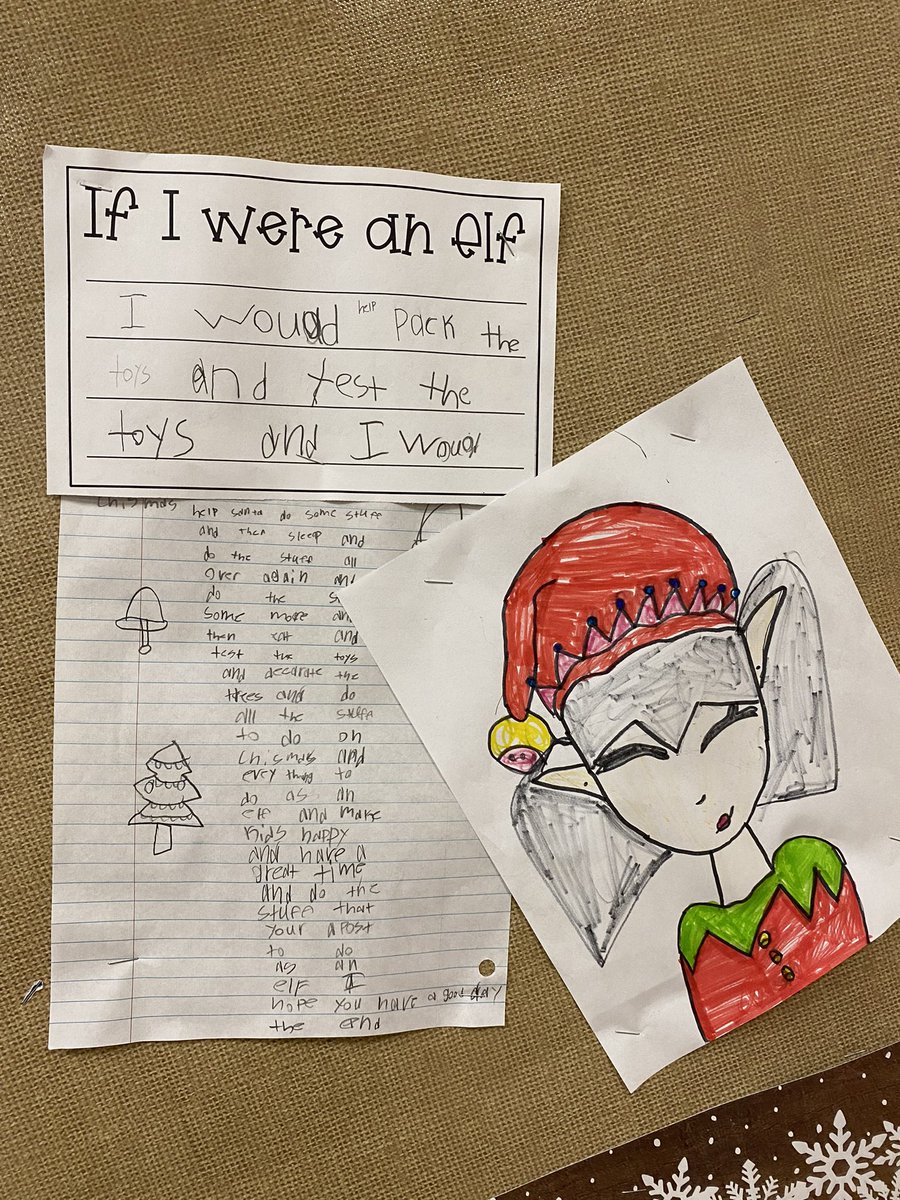 If I were an elf
I would help pack the
toys and test the
toys and I woud
Chismas
help santa do some stuff
and then sleep and
do the stuff all
over again and
do the
some more an
then eat and
test the toys
and decorate the
trees and do
all the stuff
to do on
Chismas and
every thing to
do as an
elf and make
kids happy
and have a
great time
and do the
stuff that
your apost
to do
as an
elf I
hope you have a good day
the end